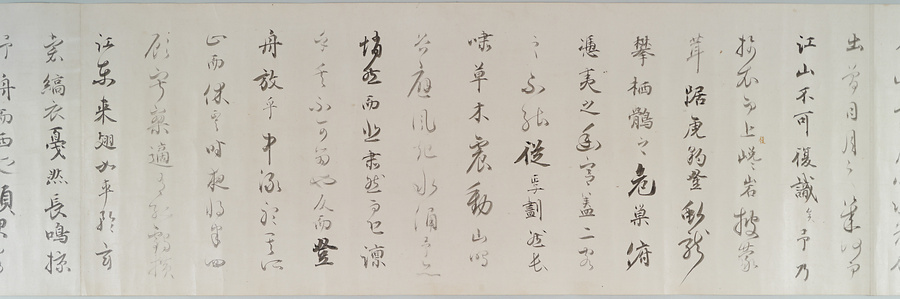 出曾日月之幾何而
江山不可復識矣予乃
攝衣而上巉岩披蒙
茸踞虎豹登虬龍
攀栖鶻之危巢俯
馮夷之幽宮蓋二客
之不能從焉劃然長
嘯草木震動山鳴
谷應風起水涌予亦
悄然而悲肅然而恐凜
乎其不可留也反而登
舟放乎中流聽其所
止而休焉時夜將半四
顧寂寥適有孤鶴橫
江東來翅如車輪玄
裳縞衣戛然長鳴掠
予舟而西也須臾客